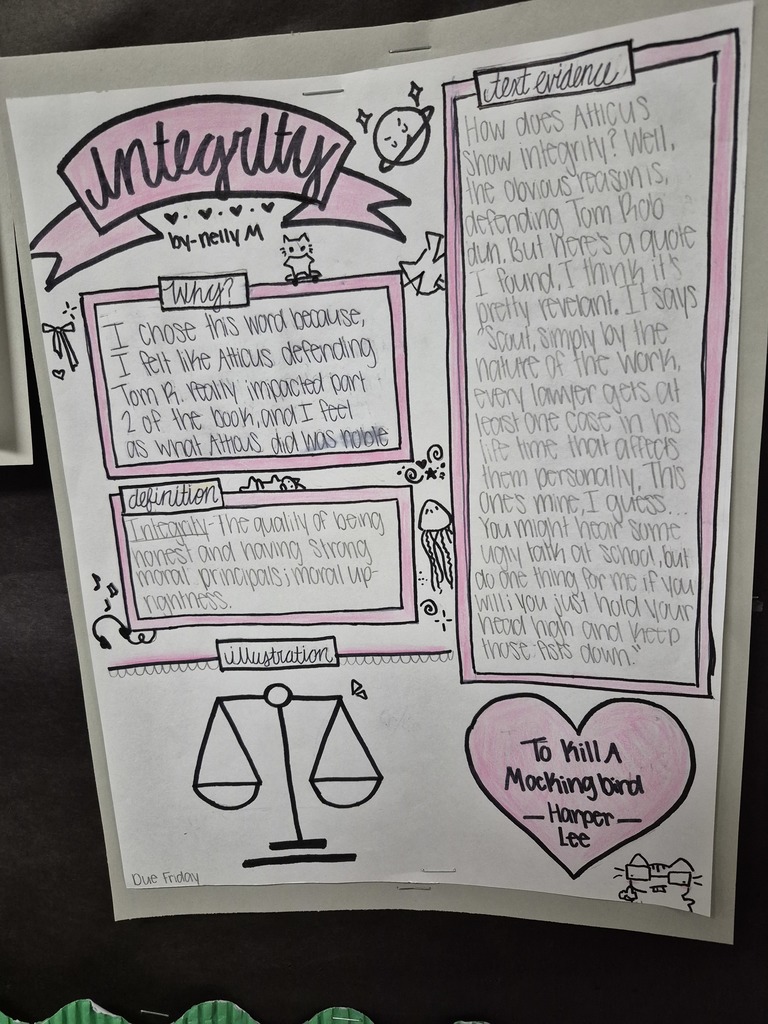 integrity
by-nelly M
Why?
I chose this word because,
I felt like Atticus defending
Tom R. really impacted part
2 of the book, and I feel
as what Atticus did was noble
definition
Integrity- The quality of being
honest and having strong
moral principals; moral up-
rightness.
illustration
text evidence
How does Atticus
show integrity? Well,
the obvious reason is,
defending Tom Rob
dun. But here's a quote
I found, I think it's
pretty revelant. It says
"Scout, simply by the
nature of the work,
every lawyer gets at
least one case in his
life time that affects
them personally. This
one's mine, I guess...
You might hear some
ugly talk at school, but
do one thing for me if you
will; you just hold your
head high and keep
those fists down."
To Kill A
Mockingbird
- Harper -
Lee
Due Friday